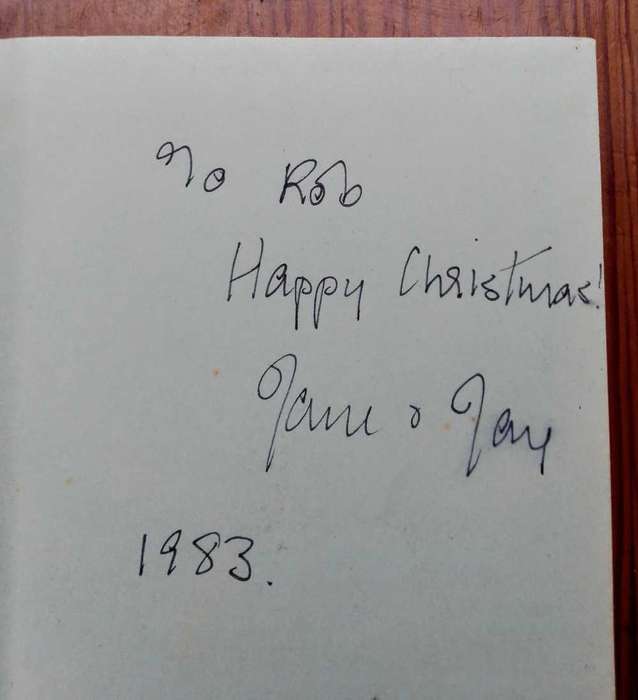 To Rob
Happy Christmas!
Jane & Jay
1983.